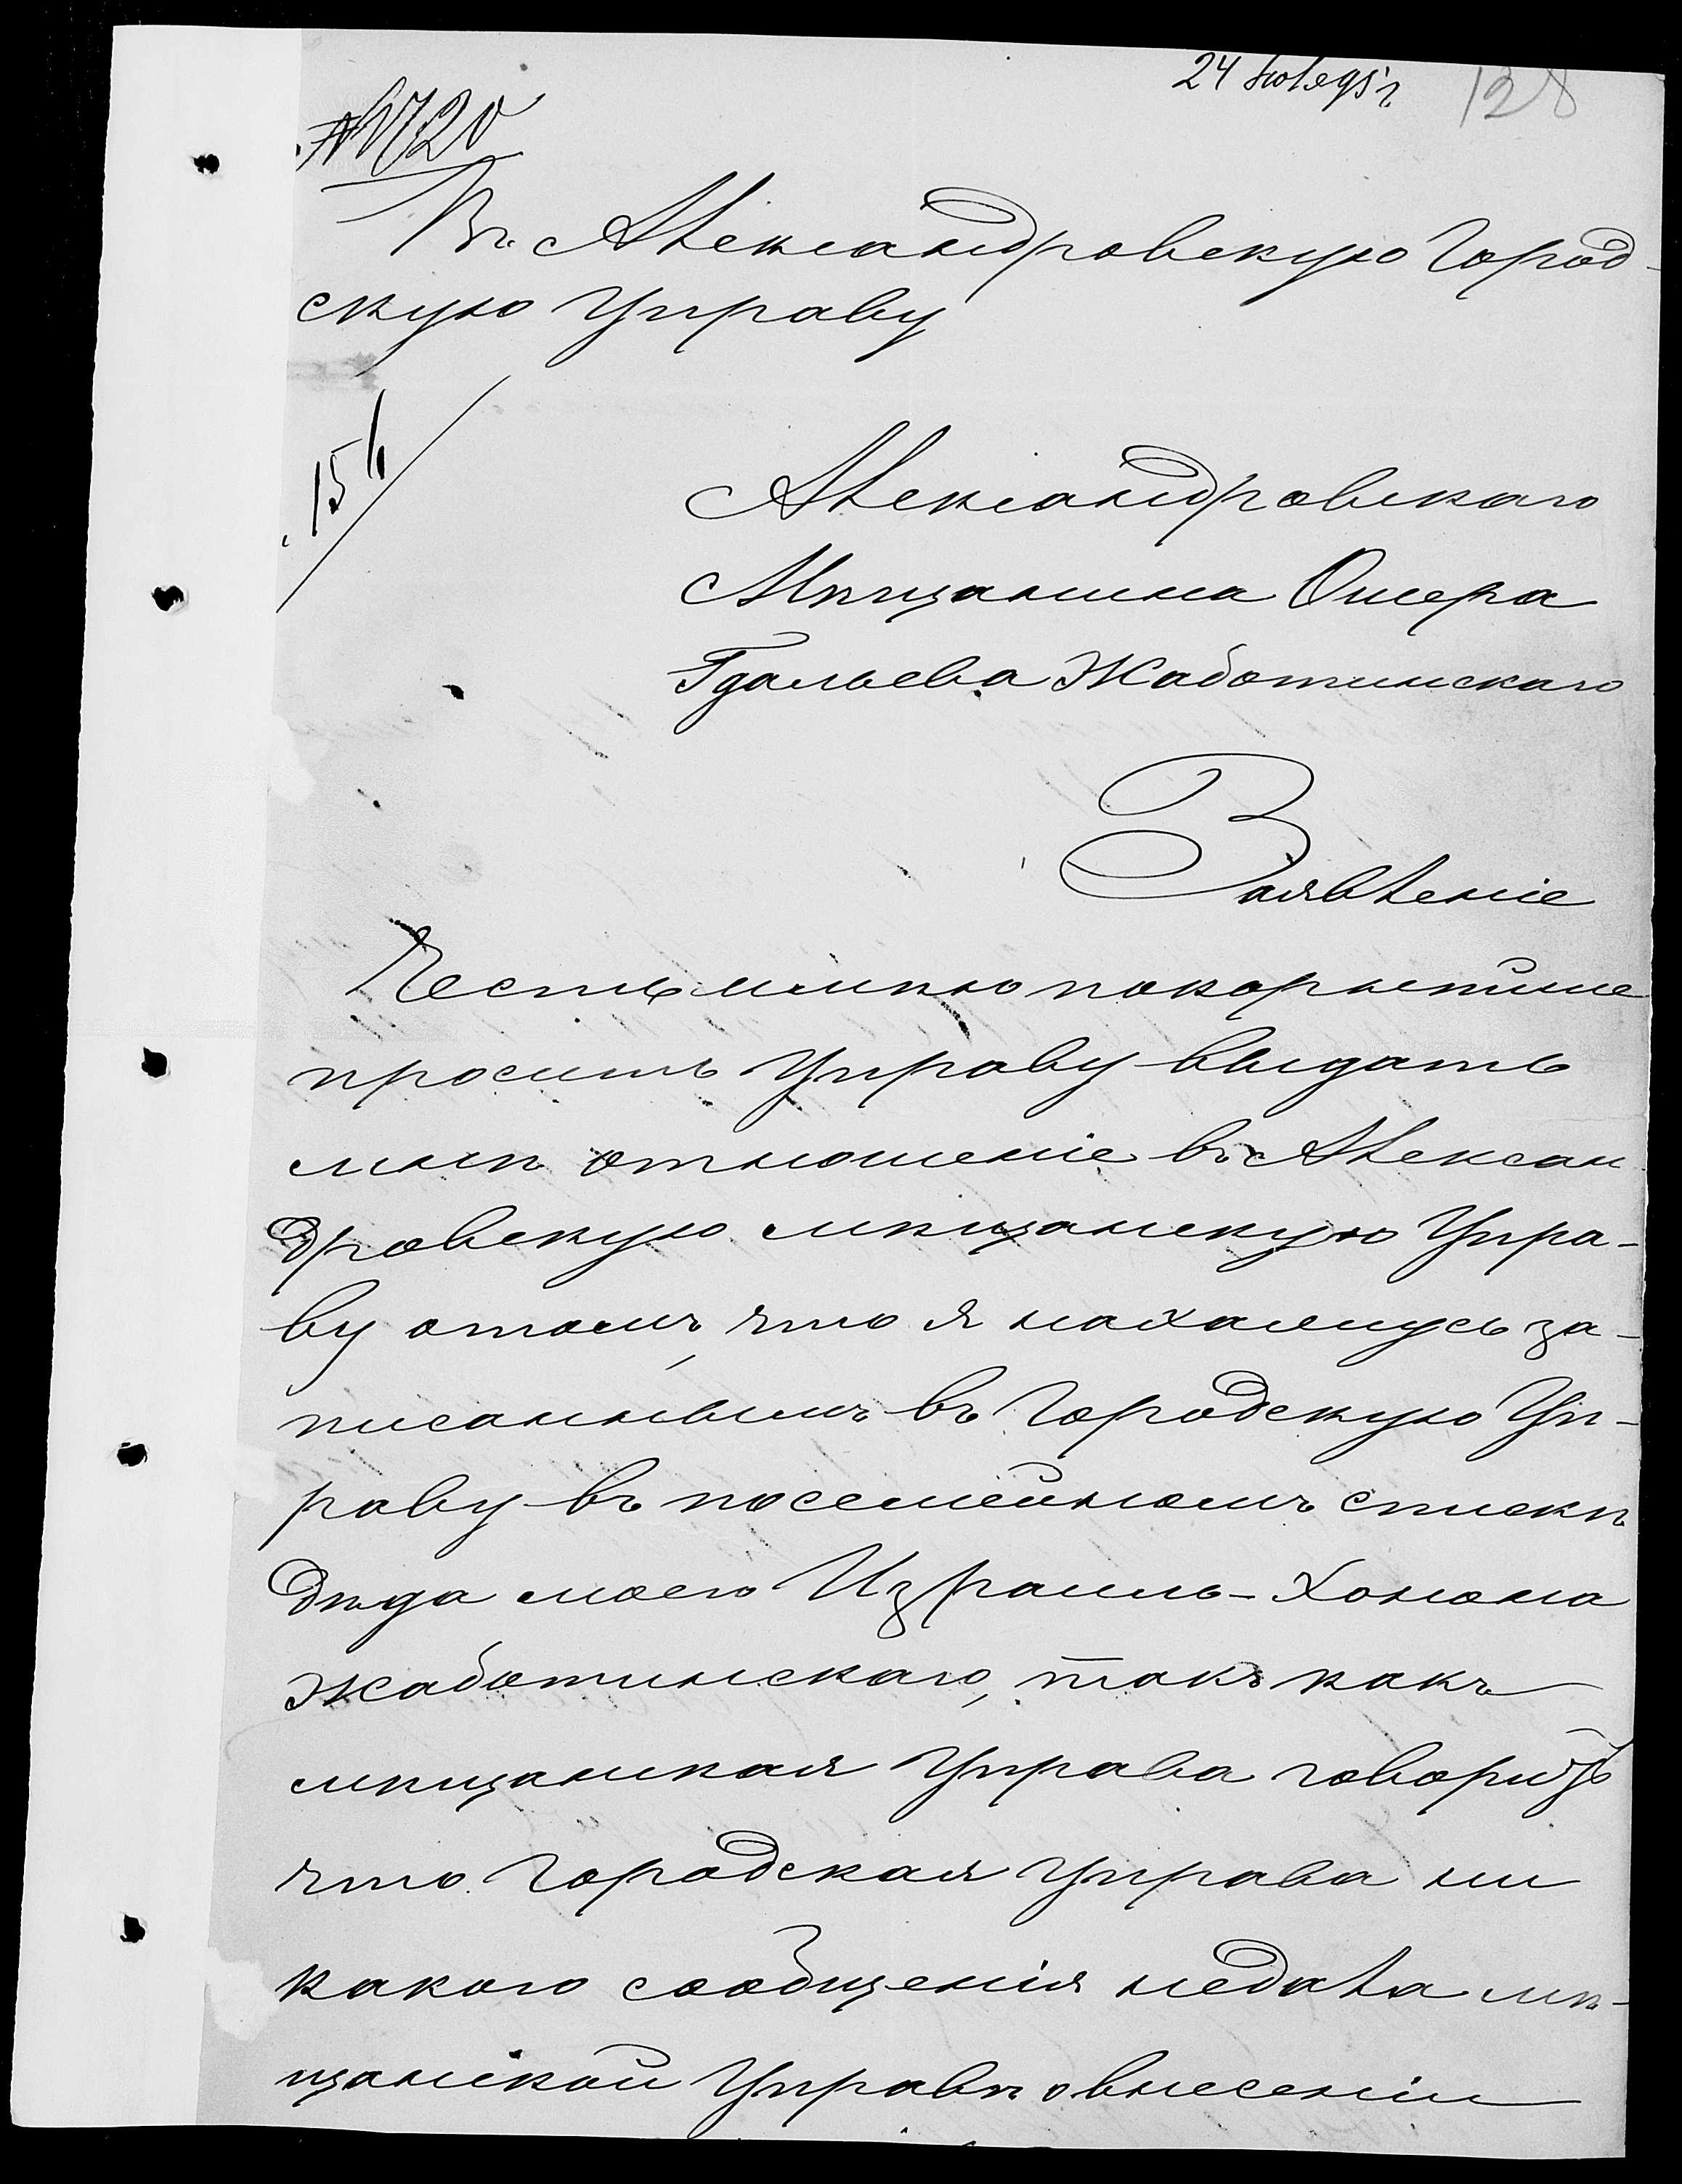 24 Іюля 95 г.
128
№ 1720
Въ Александровскую Город-
скую Управу
Александровскаго
Мѣщанина Ошера
Гдальева Жаботинскаго
Заявленіе
Честь имѣю покорнѣйше
просить Управу выдать
мнѣ отношеніе въ Алексан
дровскую мѣщанскую Упра-
ву отомъ, что я нахожусь за-
писаннымъ въ Городскую Уп-
раву въ посемейномъ спискѣ
дѣда моего Израиль-Хонона
Жаботинскаго, такъ какъ
мѣщанская Управа говоритъ
что Городская Управа ни
какого сообщенія недала мѣ-
щанской Управѣ овнесеніи